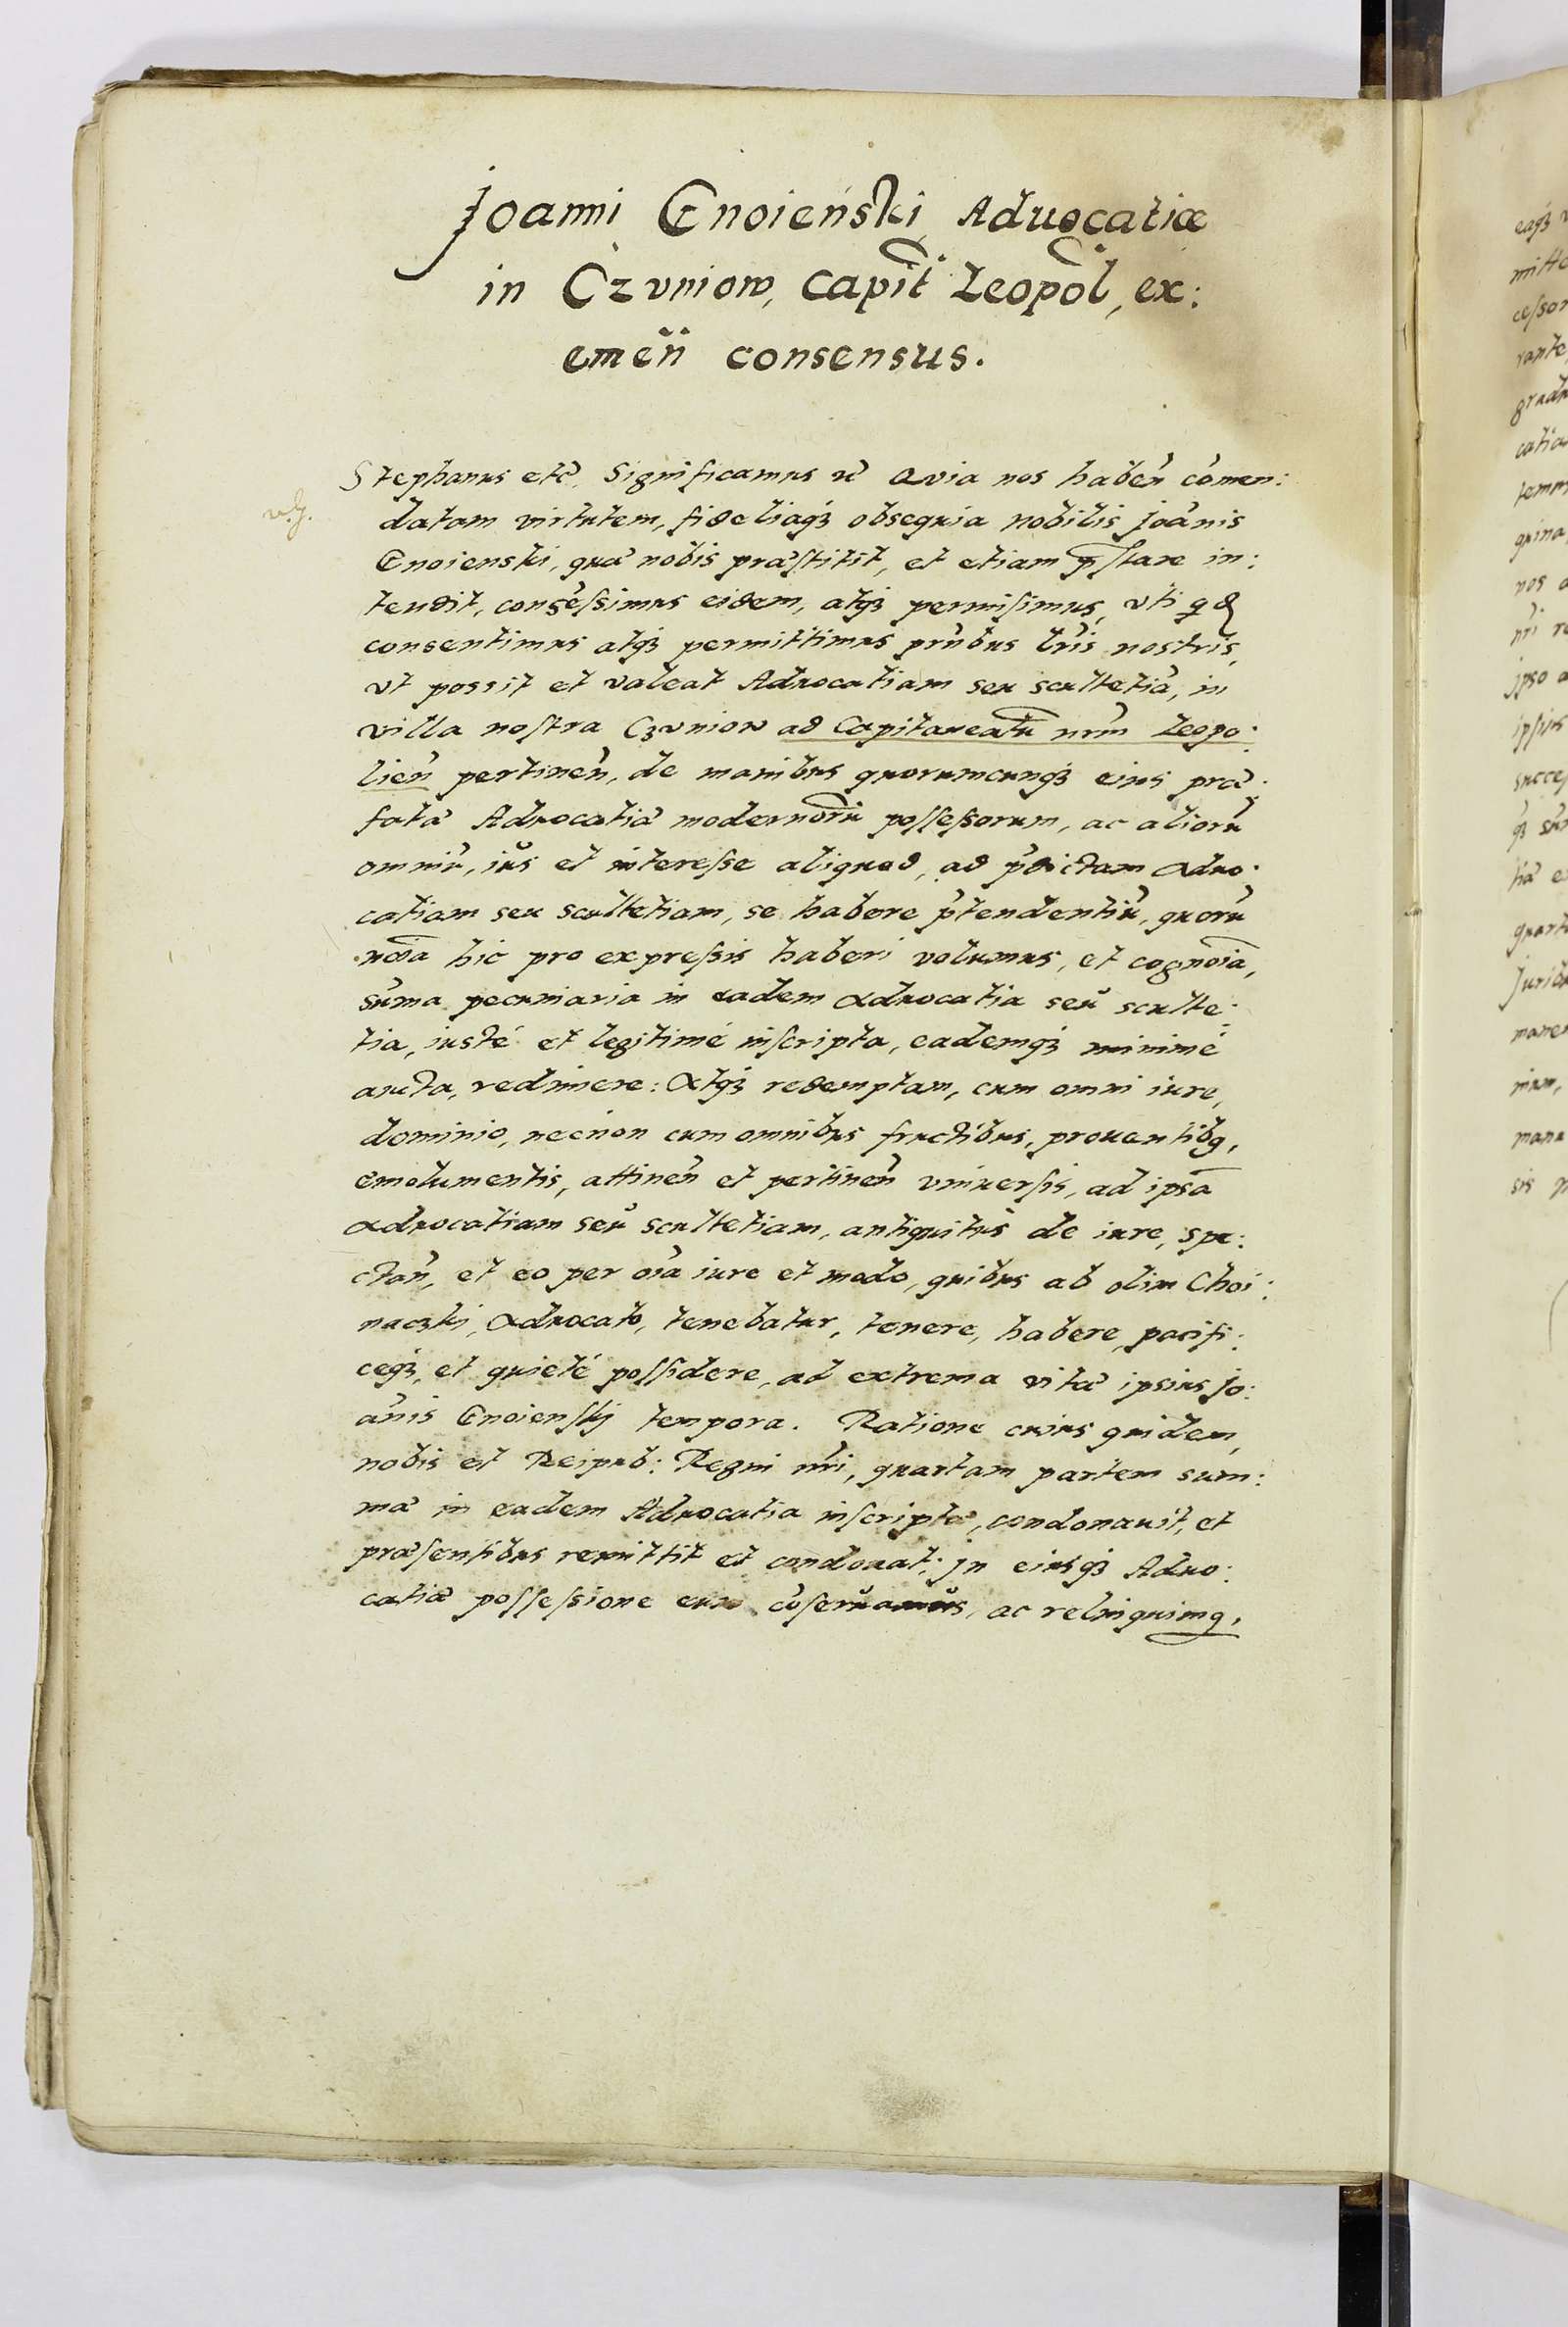 Joanni Gnoieński Aduocatiæ
in Czvniow, Capit̃ Leopol̃, ex:
emeñ consensus.
Stephanus etc̃. Significamus uc̃ Qvia nos habeñ com̃en:
datam virtutem, fideliaqꝫ obsequia nobilis Joãnis
Gnoienski, quæ nobis præstitit, et etiam p̃stare in:
tendit, consẽssimus eidem, atqꝫ permisimus, vti qd
consentimus atqꝫ permittimus pr̃ntibus lr̃is nostris,
vt possit et valeat Aduocatiam seu scultetiã, in
villa nostra Czvniow ad Capitaneatũ nr̃m Leopo:
lieñ pertineñ, de manibus quorumcunqꝫ eius præ:
fatæ Aduocatiæ modernorũ possessorum, ac aliorũ
omniũ, ius et interesse aliquod, ad p̃dictam aduo:
catiam seu scultetiam, se habere p̃tendentiũ, quorũ
noĩa hic pro expressis haberi volumus, et cognoĩa,
sum̃a pecuniaria in eadem aduocatia seu sculte:
tia, iusté et legitimé inscripta, eademqꝫ minimé
aucta, redimere: Atqꝫ redemptam, cum omni iure,
dominio, necñon cum omnibus fructibus, prouentibq,
emolumentis, attineñ et pertineñ vniuersis, ad ipsã
aduocatiam seu scultetiam, antiquitus de iure, spe:
ctañ, et eo per oĩa iure et modo, quibus ab olim Choi:
naczki, Aduocato, tenebatur, tenere, habere, pacifi:
ceqꝫ, et quieté possidere, ad extrema vitæ ipsius Jo:
ãnis Gnoienskj tempora. Ratione cuius quidem,
nobis et Reipub: Regni nr̃i, quartam partem sum:
mæ in eadem Aduocatia inscriptæ, condonauit, et
præsentibus remittit et condonat: jn eiusqꝫ Aduo:
catiæ possessione eum cõseruamus, ac relinquimq,